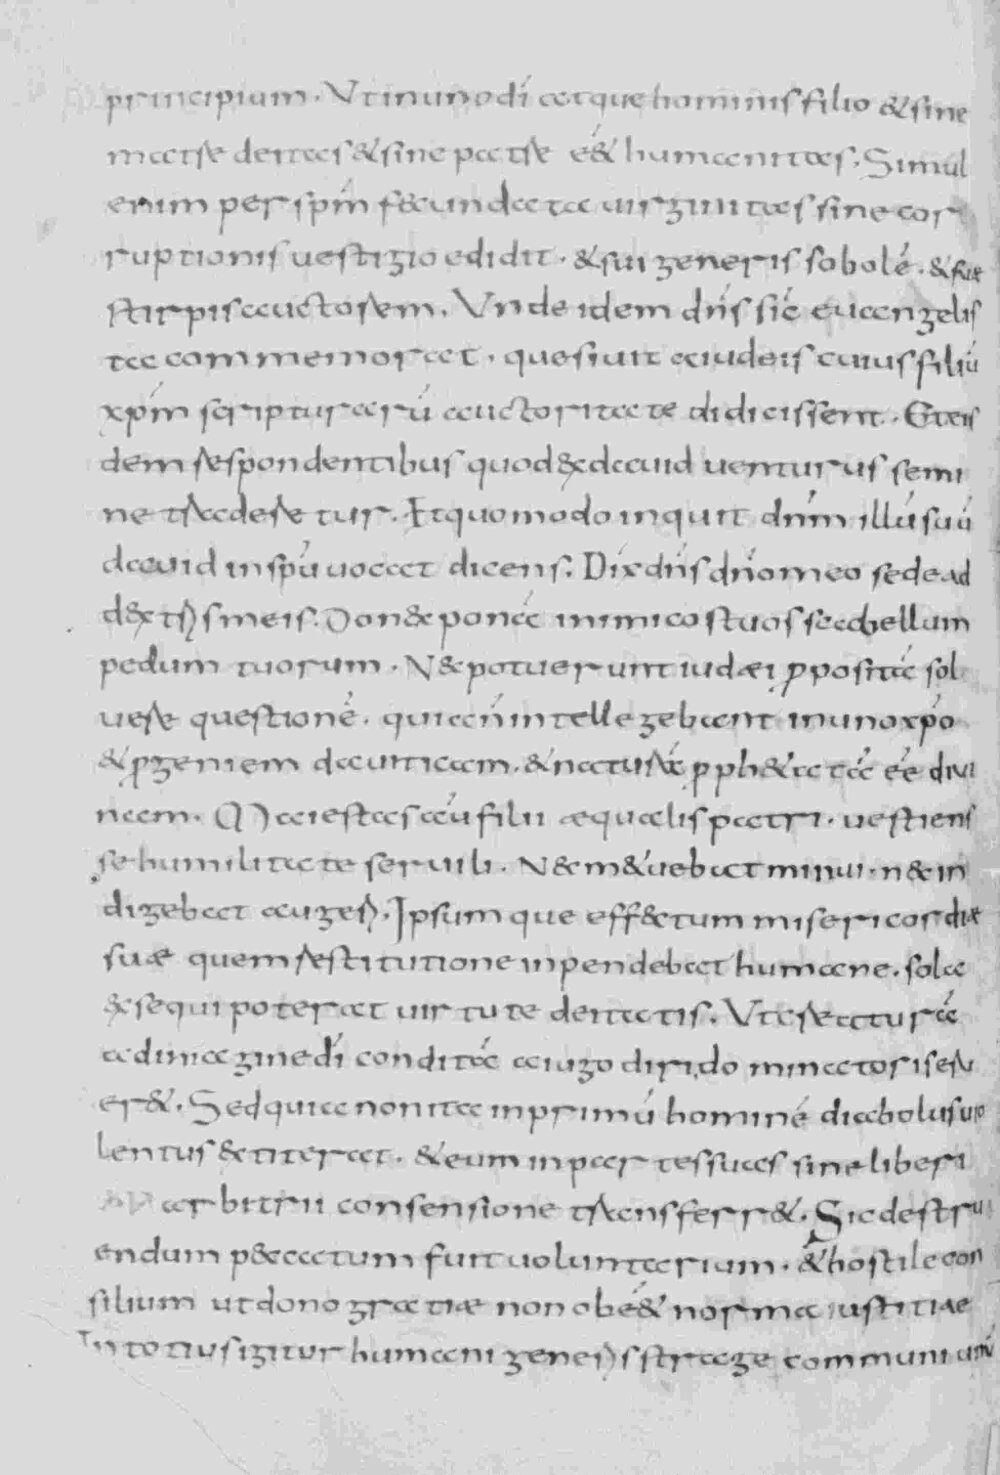 principium. Ut in uno dī atque hominis filio & sine
matre deitas & sine patre eé& humanitas. Simul
enim per spm̄ fecundata uirginitas sine cor
ruptionis uestigio edidit. & sui generis sobolē. & suae
stirpis auctorem. Unde idem dn̄s sic̄ euangelis
ta commemorat. quesiuit a iudeis cuius filiū
xp̄m scripturarū auctoritate didicissent. Et eis
dem respondentibus quod ex dauid uenturus semi
ne traderetur. Et quomodo inquit dn̄m illū suū
dauid in spū uocat dicens. Dix dn̄s dn̄o meo sede ad
dextris meis. Donec ponā inimicos tuos scabellum
pedum tuorum. Nec potuerunt iudaei ꝓpositā sol
uere questionē. quia n̄ intellegebant in uno xp̄o
& ꝓgeniem dauiticam. & naturā ꝓph&atā eē diui
nam. Maiestas aū filii aequalis patri. uestiens
se humilitate seruili. Nec metuebat minui. nec in
digebat augeri. Ipsumque effectum misericordiae
suae quem restitutione inpendebat humane. sola
exsequi poterat uirtute deitatis. Ut creaturā
ad imaginē dī conditā a iugo diri dominatoris eru
er&. Sed quia non ita in primū hominē diabolus uio
lentus extiterat. & eum in partes suas sine liberi
arbitrii consensione transferr&. Sic destru
endum peccatum fuit uoluntarium. & hostile con
silium ut dono gratiae non obē& norma iustitiae
In totius igitur humani generis strage communi unū